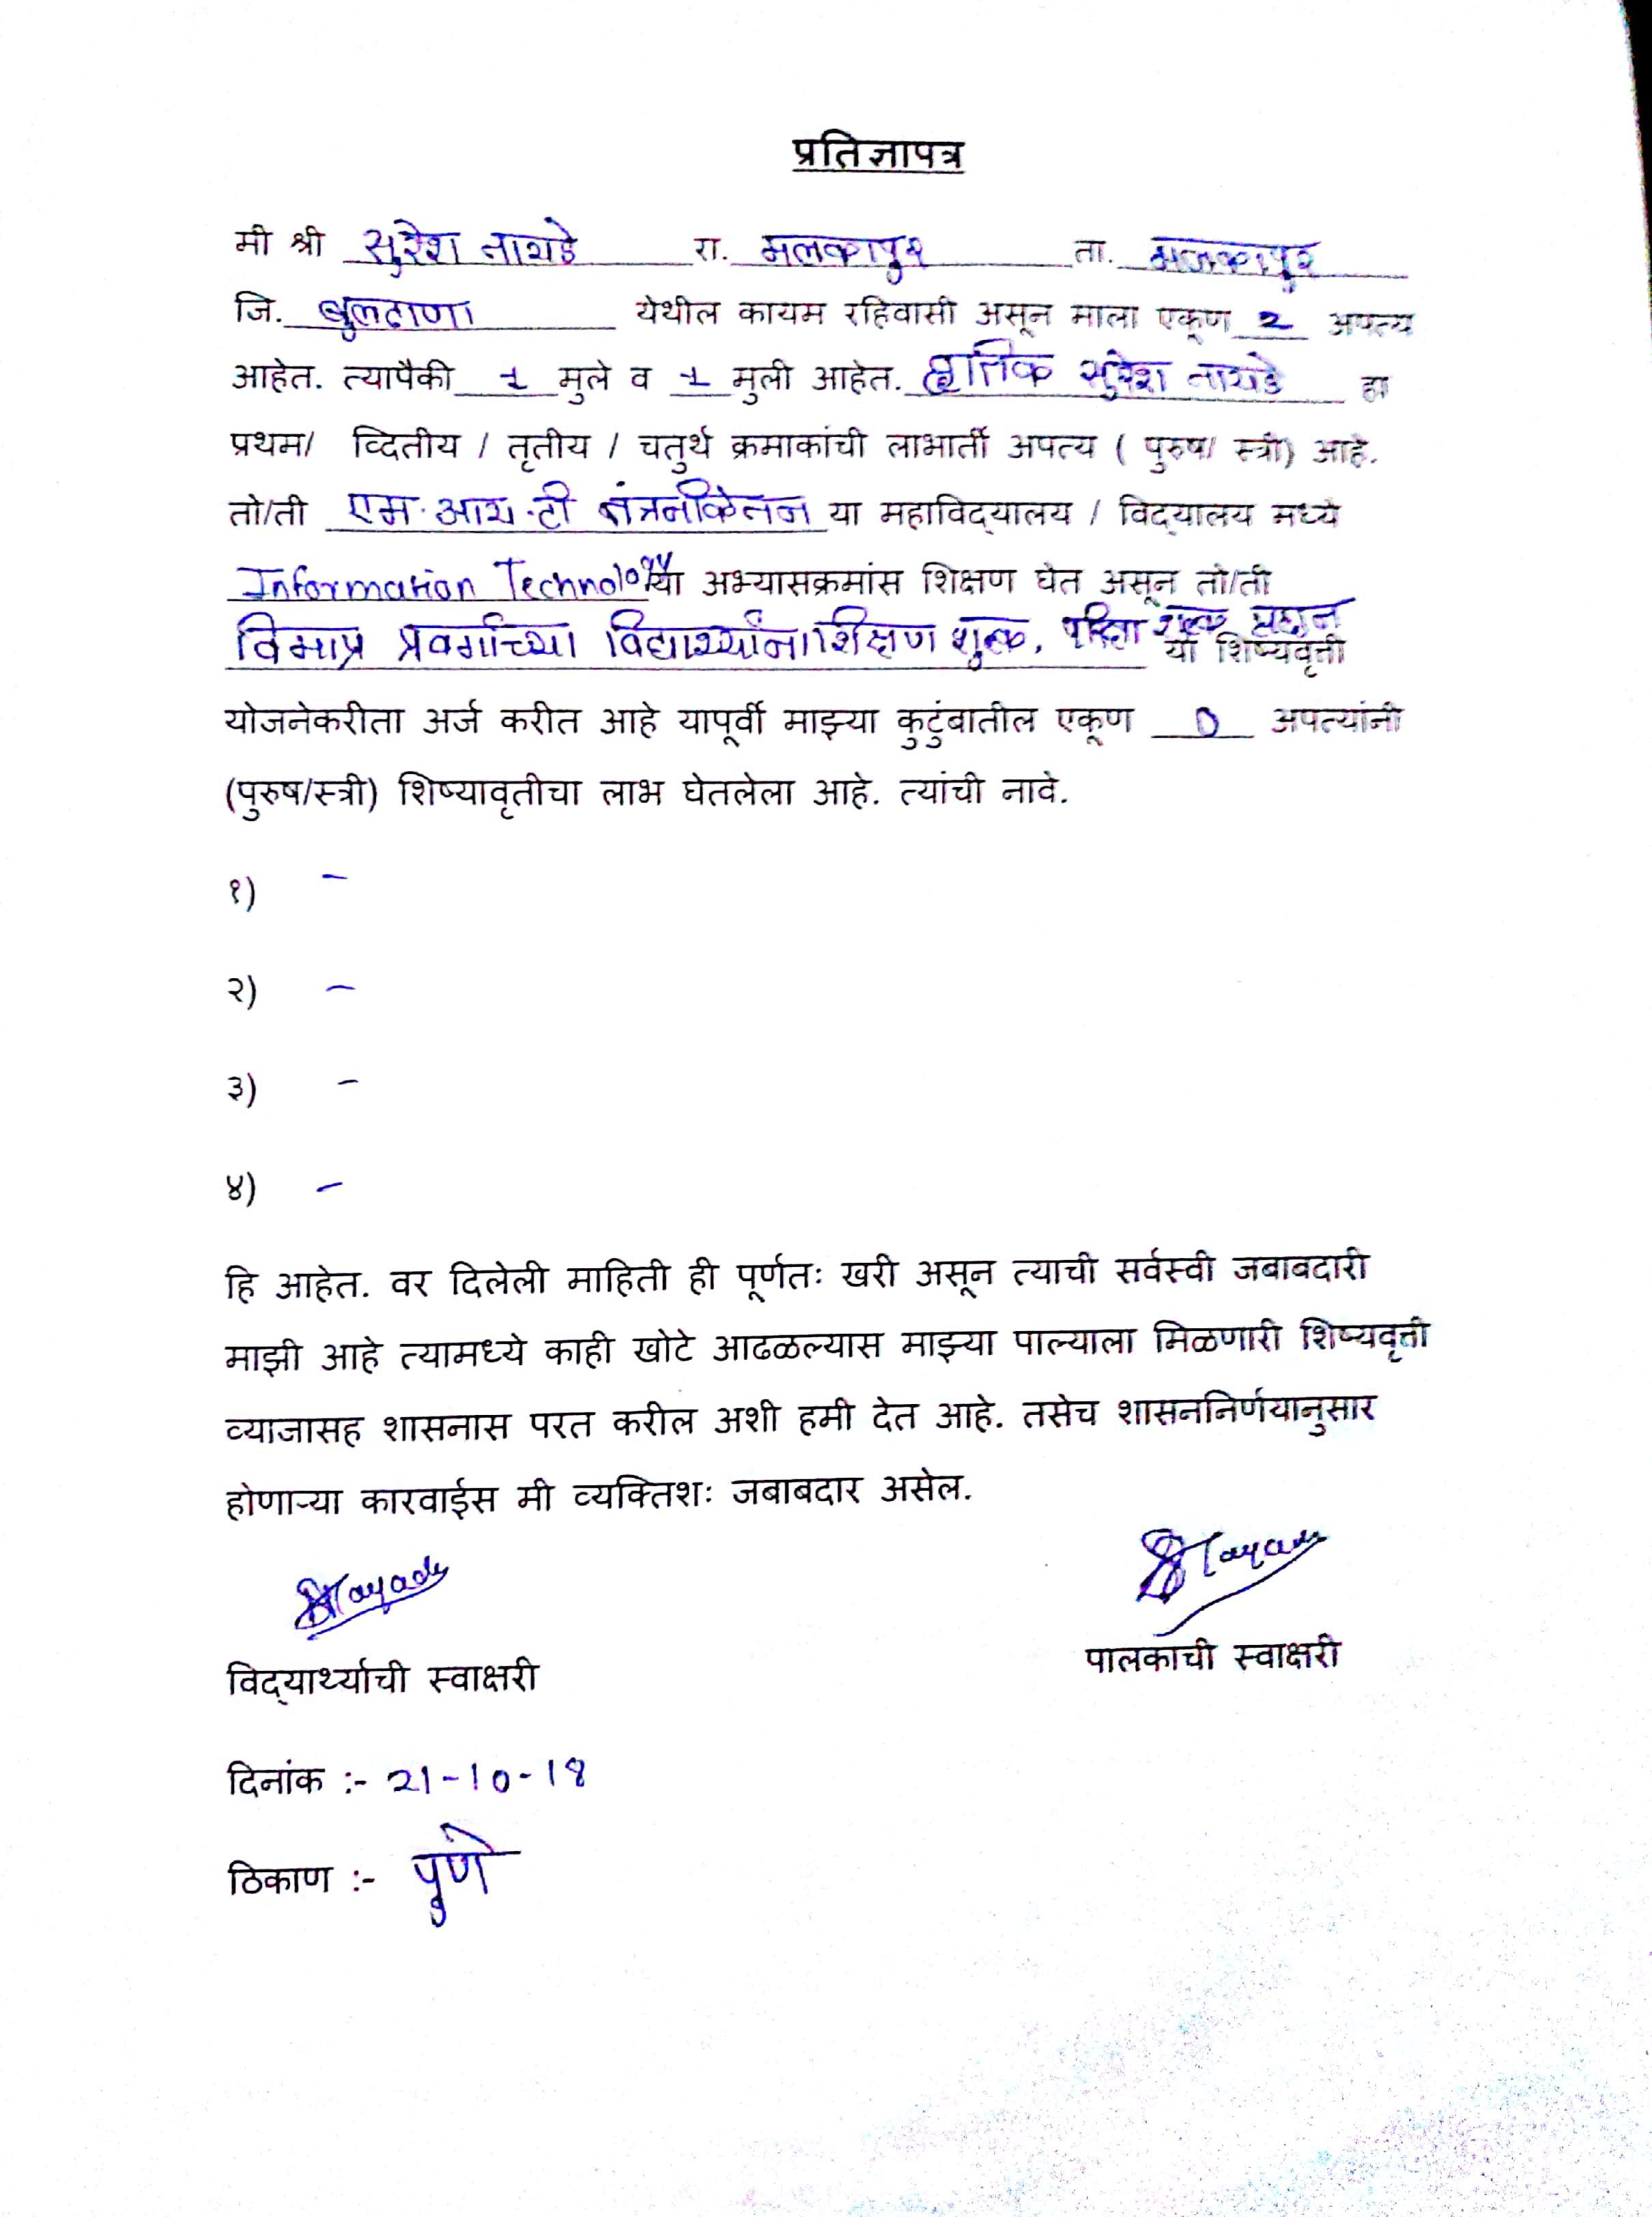 प्रतिज्ञापत्र
मी श्री सुरेश तायडे रा. मलकापुर ता. मलकापुर
जि. बुलढाणा येथील कायम रहिवासी असून माला एकूण 2 अपत्य
आहेत. त्यापैकी 1 मुले व 1 मुली आहेत. सुरेश तायडे हा
प्रथम/ व्दितीय / तृतीय / चतुर्थ क्रमाकांची लाभार्ती अपत्य ( पुरुष/ स्त्री) आहे.
तो/ती एम.आय.टी तंत्रनिकेतन या महाविद्यालय / विद्यालय मध्ये
Information Technology या अभ्यासक्रमांस शिक्षण घेत असून तो/ती
विमाप्र प्रवर्गाच्या विद्यार्थ्यांना शिक्षण शुल्क, परिक्षा शुल्क प्रदान
या शिष्यवृत्ती
योजनेकरीता अर्ज करीत आहे यापूर्वी माझ्या कुटुंबातील एकूण 0 अपत्यांनी
(पुरुष/स्त्री) शिष्यावृतीचा लाभ घेतलेला आहे. त्यांची नावे.
१) -
२) -
३) -
४) -
हि आहेत. वर दिलेली माहिती ही पूर्णतः खरी असून त्याची सर्वस्वी जबाबदारी
माझी आहे त्यामध्ये काही खोटे आढळल्यास माझ्या पाल्याला मिळणारी शिष्यवृत्ती
व्याजासह शासनास परत करील अशी हमी देत आहे. तसेच शासननिर्णयानुसार
होणाऱ्या कारवाईस मी व्यक्तिशः जबाबदार असेल.
विद्यार्थ्याची स्वाक्षरी पालकाची स्वाक्षरी
दिनांक :- 21-10-18
ठिकाण :- पुणे